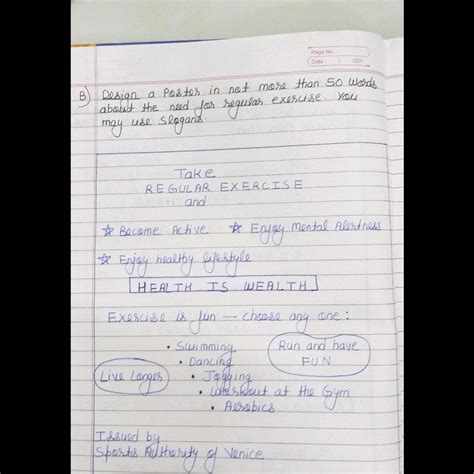 Page No.
Date: / /201
B) Design a Poster in not more than 50 words
about the need for regular exercise. You
may use slogans.
Take
REGULAR EXERCISE
and
☆ Become Active ☆ Enjoy Mental Alertness
☆ Enjoy healthy lifestyle
HEALTH IS WEALTH
Exercise is fun — choose any one:
• Swimming
• Dancing
• Jogging
• Workout at the Gym
• Aerobics
Run and have
FUN
Live Longer
Issued by
Sports Authority of Venice